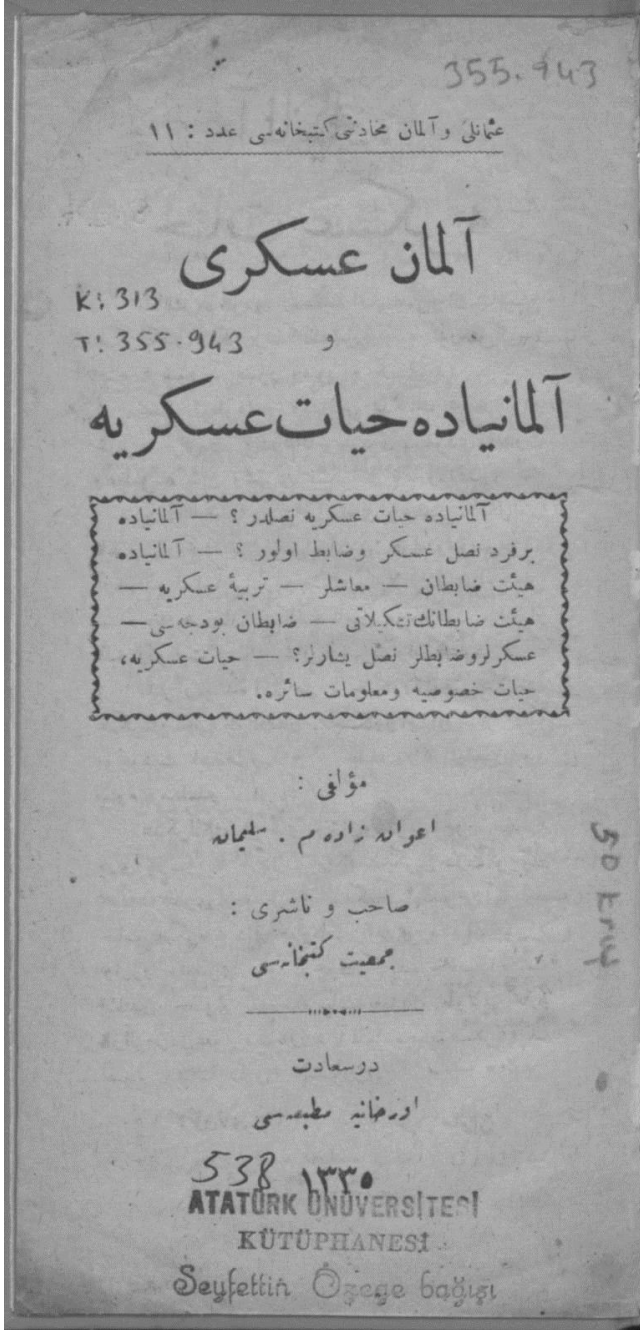 355.943
عثمانلی و آلمان مخادنتی کتبخانه‌سی عدد : ١١
آلمان عسکری
K: 313
T: 355.943
و
آلمانیاده حیات عسکریه
آلمانیاده حیات عسکریه نصلدر ؟ — آلمانیاده
برفرد نصل عسکر وضابط اولور ؟ — آلمانیاده
هیئت ضابطان — معاشلر — تربیۀ عسکریه —
هیئت ضابطانك تشکیلاتی — ضابطان بودجه‌سی —
عسکرلر وضابطلر نصل یشارلر؟ — حیات عسکریه،
حیات خصوصیه ومعلومات سائره.
مؤلفی :
اعوان زاده م . سلیمان
50 krş
صاحب و ناشری :
جمعیت کتبخانه‌سی
درسعادت
اورخانیه مطبعه‌سی
538 ١٣٣٠
ATATÜRK ÜNÜVERSİTESİ
KÜTÜPHANESİ
Seyfettin Özege bağışı